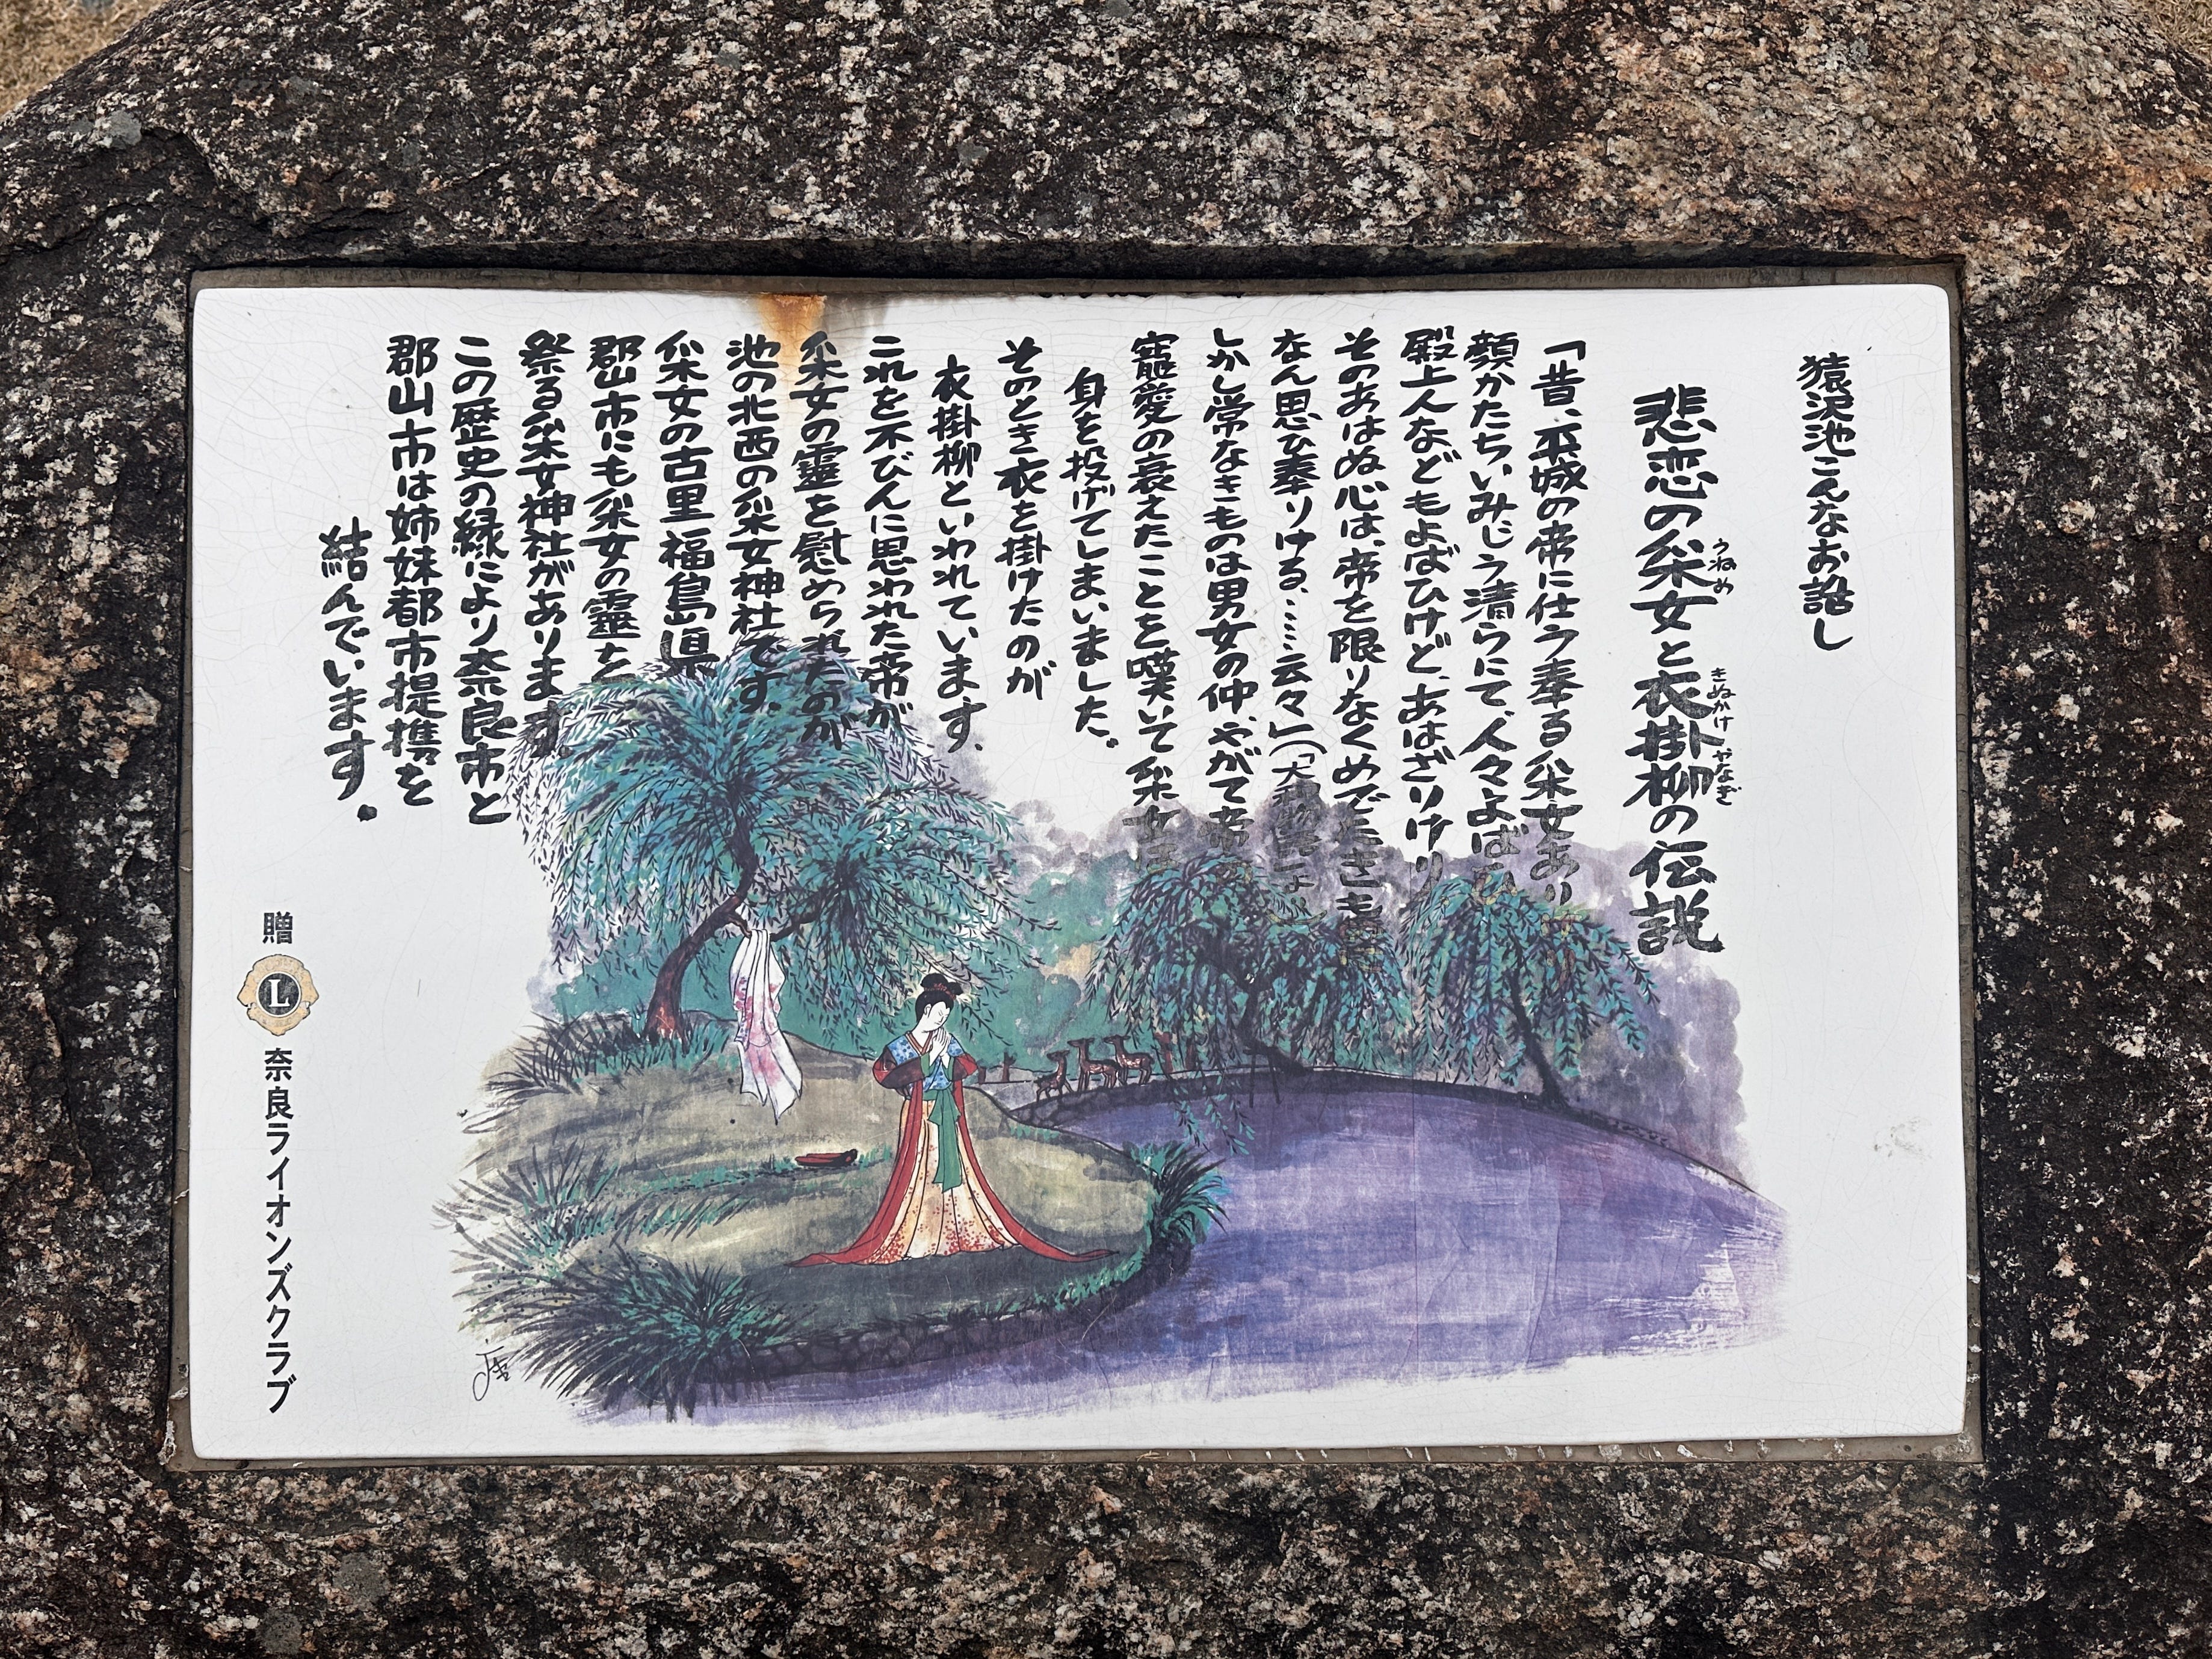 猿沢池こんなお話し
悲恋の采女と衣掛柳の伝説
うねめ
きぬかけやなぎ
「昔、平城の帝に仕う奉る采女あり
顔かたちいみじう清らにて、人々よばひ
殿上人などもよばひけど、あはざりけり
そのあはぬ心は、帝を限りなくめでたきも
なん思ひ奉りける、……云々」（「大和物語」より）
しかし常なきものは男女の仲、やがて帝
寵愛の衰えたことを嘆いて采女
身を投げてしまいました。
そのとき衣を掛けたのが
衣掛柳といわれています。
これを不びんに思われた帝が
采女の靈を慰められたのが
池の北西の采女神社です。
采女の古里福島県
郡山市にも采女の靈を
祭る采女神社があります。
この歴史の縁により奈良市と
郡山市は姉妹都市提携を
結んでいます。
贈
L
奈良ライオンズクラブ